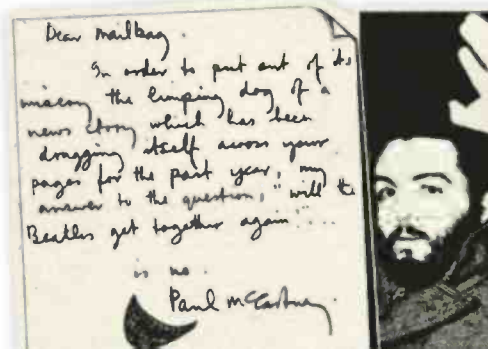 Dear Mailbag.
In order to put out of its
misery the limping dog of a
news story which has been
dragging itself across your
pages for the past year, my
answer to the question, "will the
Beatles get together again"....
is no.
Paul McCartney.